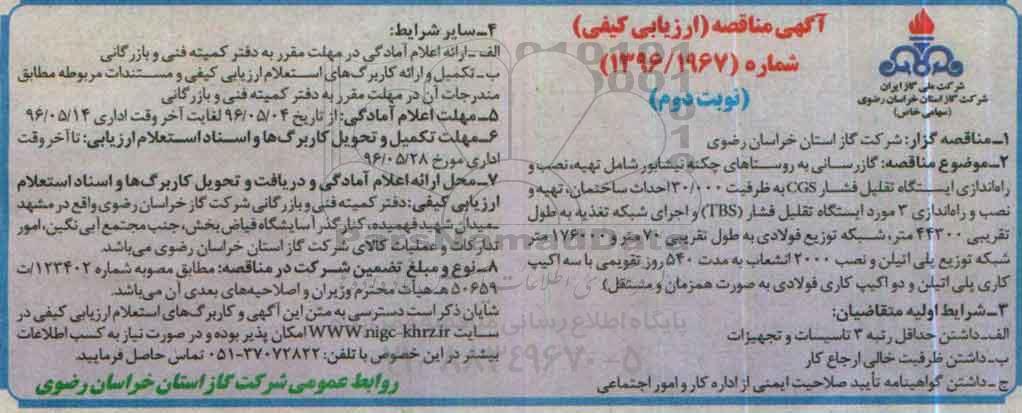 آگهی مناقصه (ارزیابی کیفی)
شماره (۱۳۹۶/۱۹۶۷)
(نوبت دوم)
شرکت ملی گاز ایران
شرکت گاز استان خراسان رضوی
(سهامی خاص)
۱-مناقصه گزار: شرکت گاز استان خراسان رضوی
۲-موضوع مناقصه: گازرسانی به روستاهای چکنه نیشابور شامل تهیه، نصب و
راه‌اندازی ایستگاه تقلیل فشار CGS به ظرفیت ۳۰/۰۰۰ احداث ساختمان، تهیه و
نصب و راه‌اندازی ۳ مورد ایستگاه تقلیل فشار (TBS) و اجرای شبکه تغذیه به طول
تقریبی ۴۴۳۰۰ متر، شبکه توزیع فولادی به طول تقریبی ۷۰ متر و ۱۷۶۰۰۰ متر
شبکه توزیع پلی اتیلن و نصب ۲۰۰۰ انشعاب به مدت ۵۴۰ روز تقویمی با سه اکیپ
کاری پلی اتیلن و دو اکیپ کاری فولادی به صورت همزمان و مستقل)
۳-شرایط اولیه متقاضیان:
الف-داشتن حداقل رتبه ۳ تاسیسات و تجهیزات
ب-داشتن ظرفیت خالی ارجاع کار
ج-داشتن گواهینامه تأیید صلاحیت ایمنی از اداره کار و امور اجتماعی
۴-سایر شرایط:
الف-ارائه اعلام آمادگی در مهلت مقرر به دفتر کمیته فنی و بازرگانی
ب-تکمیل و ارائه کاربرگ‌های استعلام ارزیابی کیفی و مستندات مربوطه مطابق
مندرجات آن در مهلت مقرر به دفتر کمیته فنی و بازرگانی
۵-مهلت اعلام آمادگی: از تاریخ ۹۶/۰۵/۰۴ لغایت آخر وقت اداری ۹۶/۰۵/۱۴
۶-مهلت تکمیل و تحویل کاربرگ‌ها و اسناد استعلام ارزیابی: تا آخر وقت
اداری مورخ ۹۶/۰۵/۲۸
۷-محل ارائه اعلام آمادگی و دریافت و تحویل کاربرگ‌ها و اسناد استعلام
ارزیابی کیفی: دفتر کمیته فنی و بازرگانی شرکت گاز خراسان رضوی واقع در مشهد
-میدان شهید فهمیده، کنار گذر آسایشگاه فیاض بخش، جنب مجتمع آبی نگین، امور
تدارکات و عملیات کالای شرکت گاز استان خراسان رضوی می‌باشد.
۸-نوع و مبلغ تضمین شرکت در مناقصه: مطابق مصوبه شماره ۱۲۳۴۰۲/ت
۵۰۶۵۹ هـ هیأت محترم وزیران و اصلاحیه‌های بعدی آن می‌باشد.
شایان ذکر است دسترسی به متن این آگهی و کاربرگ‌های استعلام ارزیابی کیفی در
سایت WWW.nigc-khrz.ir امکان پذیر بوده و در صورت نیاز به کسب اطلاعات
بیشتر در این خصوص با تلفن: ۳۷۰۷۲۸۲۲-۰۵۱ تماس حاصل فرمایید.
روابط عمومی شرکت گاز استان خراسان رضوی